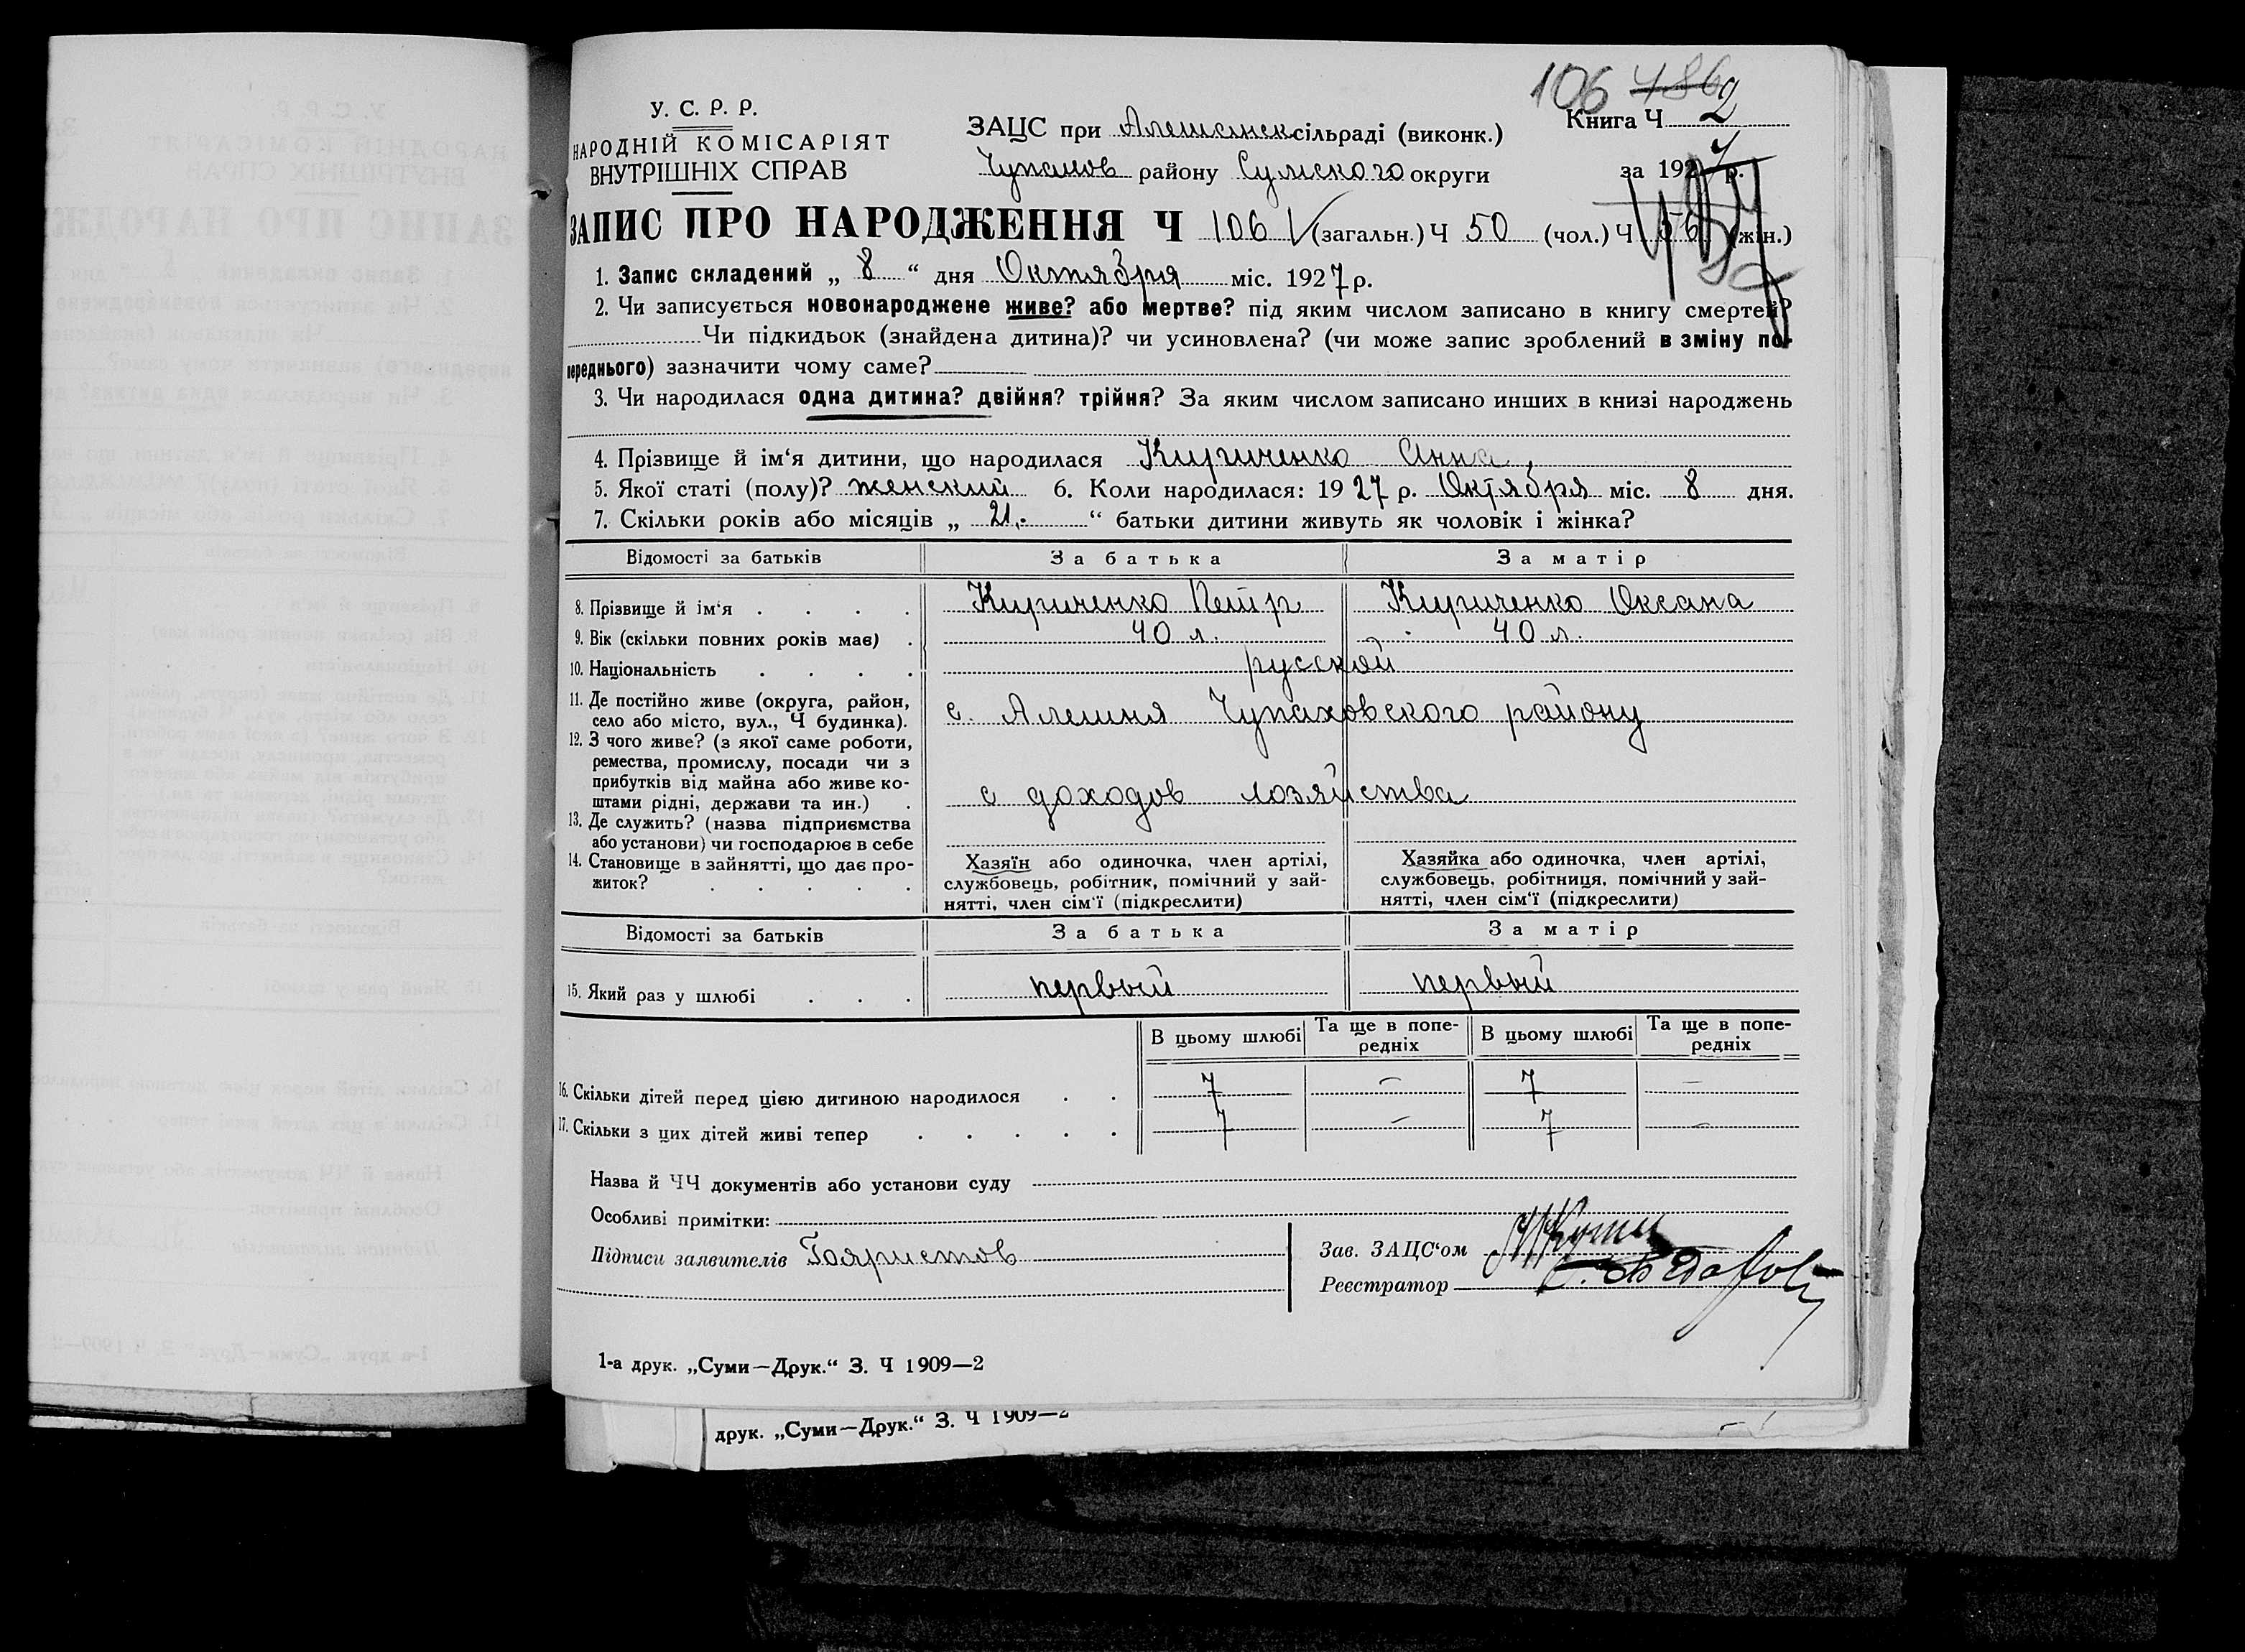 106 486
У. С. Р. Р.
НАРОДНІЙ КОМІСАРІЯТ
ВНУТРІШНІХ СПРАВ
ЗАЦС при Алешанск сільраді (виконк.)
Чупахов району Сумского округи
Книга Ч 2
за 1927 р.
ЗАПИС ПРО НАРОДЖЕННЯ Ч 106 (загальн.) Ч 50 (чол.) Ч 56 (жін.)
1. Запис складений „ 8 “ дня Октября міс. 1927 р.
2. Чи записується новонароджене живе? або мертве? під яким числом записано в книгу смертей?
Чи підкидьок (знайдена дитина)? чи усиновлена? (чи може запис зроблений в зміну по-
переднього) зазначити чому саме?
3. Чи народилася одна дитина? двійня? трійня? За яким числом записано инших в книзі народжень
4. Прізвище й ім‘я дитини, що народилася Кириченко Анна
5. Якої статі (полу)? женский 6. Коли народилася: 1927 р. Октября міс. 8 дня.
7. Скільки років або місяців „ 21 “ батьки дитини живуть як чоловік і жінка?
Відомості за батьків За батька За матір
8. Прізвище й ім‘я . . . . Кириченко Петр Кириченко Оксана
9. Вік (скільки повних років має) . 40 л. 40 л.
10. Національність . . . . русской
11. Де постійно живе (округа, район,
село або місто, вул., Ч будинка). с. Алешня Чупаховского району
12. З чого живе? (з якої саме роботи,
ремества, промислу, посади чи з
прибутків від майна або живе ко-
штами рідні, держави та ин.) . с доходов хозяйства
13. Де служить? (назва підприємства
або установи) чи господарює в себе
14. Становище в зайнятті, що дає про-
житок? . . . . .
Хазяїн або одиночка, член артілі,
службовець, робітник, помічний у зай-
нятті, член сім‘ї (підкреслити)
Хазяйка або одиночка, член артілі,
службовець, робітниця, помічний у зай-
нятті, член сім‘ї (підкреслити)
Відомості за батьків За батька За матір
15. Який раз у шлюбі . . . первый первый
В цьому шлюбі Та ще в попе-
редніх В цьому шлюбі Та ще в попе-
редніх
16. Скільки дітей перед цією дитиною народилося . . 7 — 7 —
17. Скільки з цих дітей живі тепер . . . . . 7 — 7 —
Назва й ЧЧ документів або установи суду
Особливі примітки:
Підписи заявителів
Зав. ЗАЦС‘ом
Реєстратор
1-а друк. „Суми—Друк.“ З. Ч 1909—2
друк. „Суми—Друк.“ З. Ч 1909—2